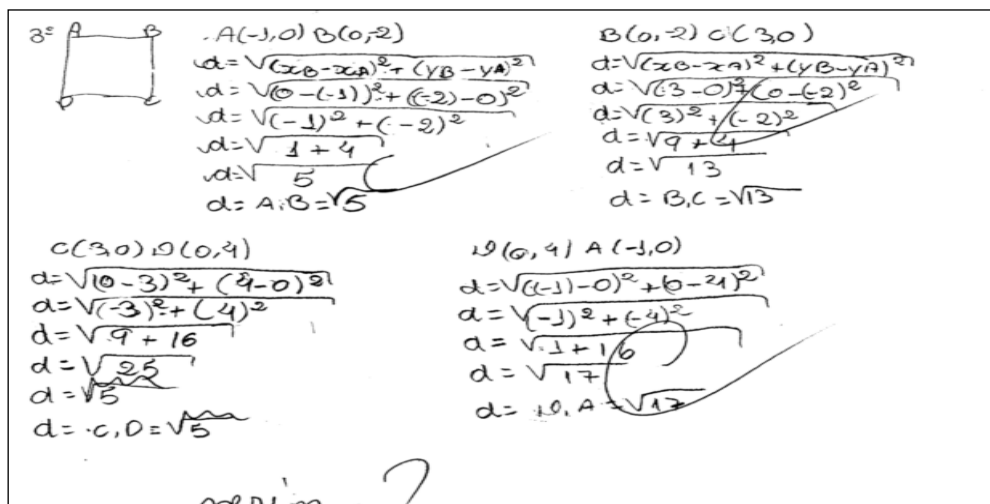 3º A B
D C
A(-1,0) B(0,-2)
d=√(xB-xA)²+(yB-yA)²
d=√(0-(-1))²+((-2)-0)²
d=√(-1)²+(-2)²
d=√1+4
d=√5
d=A,B=√5
B(0,-2) C(3,0)
d=√(xB-xA)²+(yB-yA)²
d=√(3-0)²+(0-(-2)²
d=√(3)²+(-2)²
d=√9+4
d=√13
d=B,C=√13
C(3,0) D(0,4)
d=√(0-3)²+(4-0)²
d=√(-3)²+(4)²
d=√9+16
d=√25
d=√5
d=C,D=√5
D(0,4) A(-1,0)
d=√((-1)-0)²+(0-4)²
d=√(-1)²+(-4)²
d=√1+16
d=√17
d=D,A=√17
?